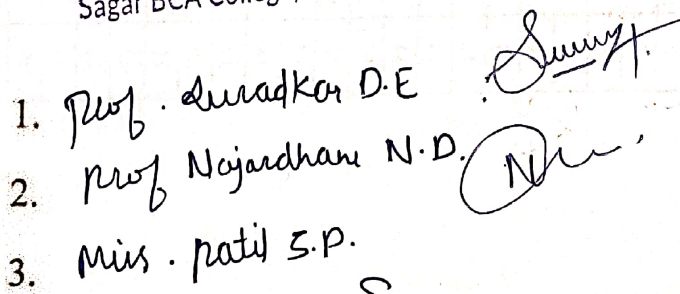 Sagar BCA
1. Prof. Suradkar D.E
2. Prof Najardhane N.D.
3. Miss. patil S.P.